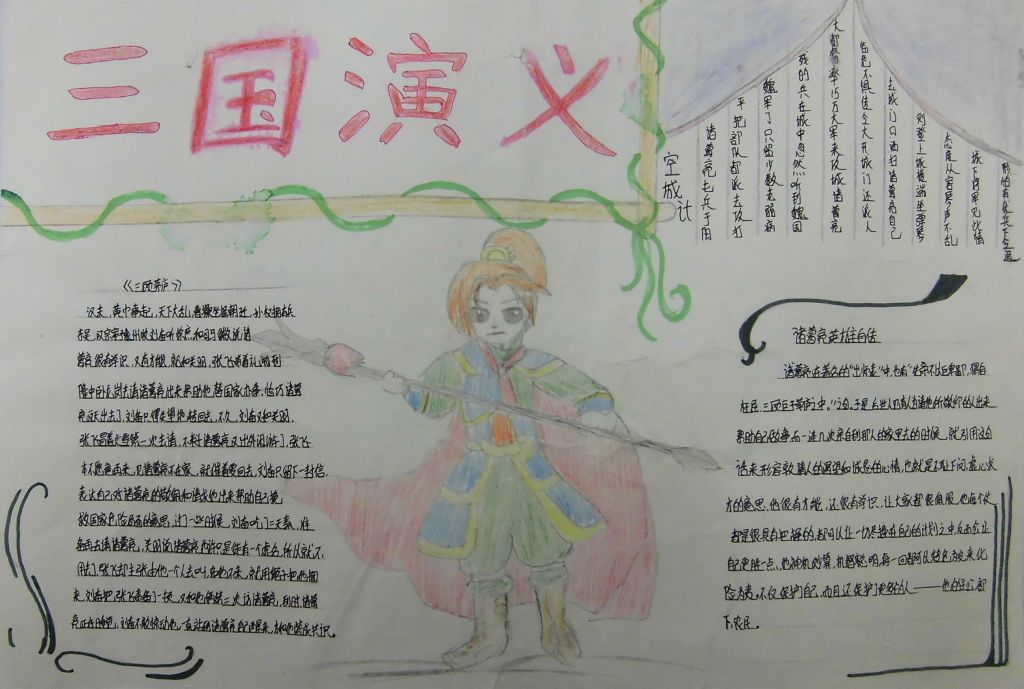 三国演义
空城计
诸葛亮屯兵于阳
平把部队都派去攻打
魏军了只留少数老弱病
残的兵在城中忽然听到魏国
大都督率15万大军来攻城诸葛亮
临危不惧传令大开城门还派人
去城门口洒扫诸葛亮自己
则登上城楼端坐弹琴
态度从容琴声不乱
城下将军见此情
形怕有伏兵于是退
《三顾茅庐》
汉末，黄巾事起，天下大乱，曹操坐据朝廷，孙权拥兵
东吴，汉宗室豫州牧刘备听徐庶和司马徽说诸
葛亮很有学识，又有才能，就和关羽，张飞带着礼物到
隆中卧龙岗去请诸葛亮出来帮助他替国家办事，恰巧诸葛
亮这天出去了，刘备只得失望地转回去，不久，刘备又和关羽，
张飞冒着大雪第二次去请，不料诸葛亮又出外闲游了，张飞
本不愿意再来，见诸葛亮不在家，就催着要回去，刘备只留下一封信，
表达自己对诸葛亮的敬佩和请他出来帮助自己挽
救国家危险局面的意思，过了一些时候，刘备吃了三天素，准
备再去请诸葛亮，关羽说诸葛亮也许是徒有一个虚名，所以就不
用去了，张飞却主张由他一个人去叫，如他不来，就用绳子把他捆
来，刘备把张飞责备了一顿，又和他俩第三次访诸葛亮，到时，诸葛
亮正在睡觉，刘备不敢惊动他，一直站到诸葛亮自己醒来，才和他坐谈共识。
诸葛亮英雄自传
诸葛亮在著名的“出师表”中，也有“先帝不以臣卑鄙，猥自
枉屈，三顾臣于草庐之中。”之句。于是后世人仍有人为请他所敬仰的人出来
帮助自己做事而一连几次亲自到那人的家里去的时候，就引用这句
话来形容敦请人的渴望和诚恳的心情，也就是不耻下问，虚心求
才的意思，他很有才能，还很有学识，让大家都很佩服，他每个仗
都是很具有把握的，都可以让一切尽握在自己的计划之中，反而会让
自己更胜一点，他神机妙算，机智聪明，每一回都可以转危为来化
险为夷。不仅保护了自己，而且还保护了更多的人——他的
下，农民。